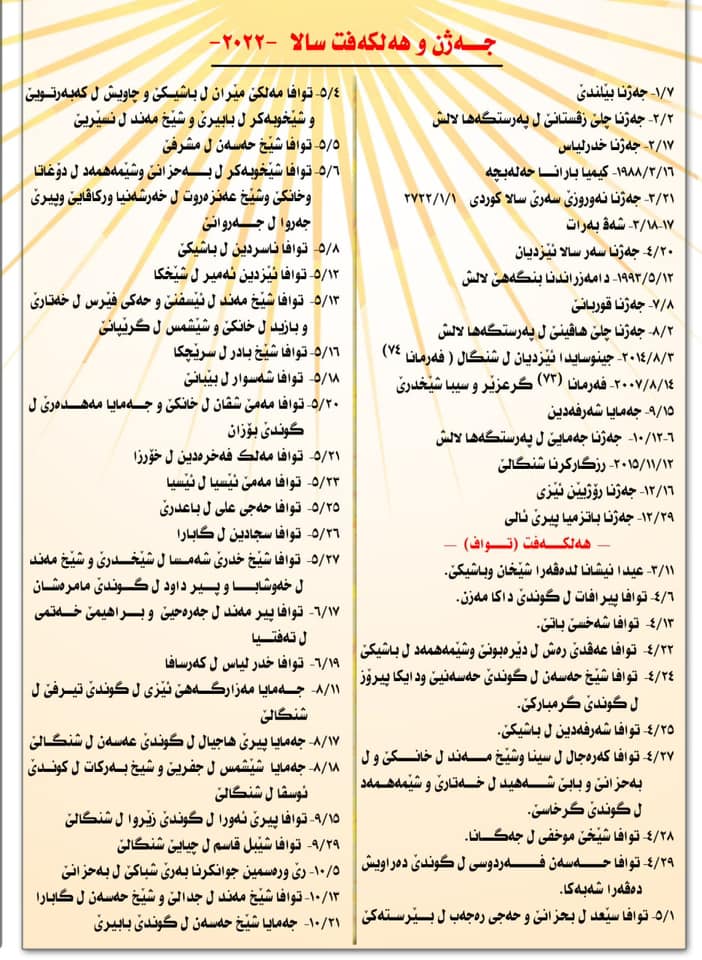 جـــەژن و هەلکەفت سالا -٢٠٢٢-
١/٧- جەژنا بێلندێ
٢/٢- جەژنا چلێ زڤستانێ ل پەرستگەها لالش
٢/١٧- جەژنا خدرلیاس
١٩٨٨/٣/١٦- کیمیا بارانا حەلەبچە
٣/٢١- جەژنا نەوروزێ سەرێ سالا کوردی ٢٧٢٢/١/١
٣/١٨-١٧- شەڤ بەرات
٤/٢٠- جەژنا سەر سالا ئێزدیان
١٩٩٣/٥/١٢- دامەزراندنا بنگەهێ لالش
٧/٨- جەژنا قوربانێ
٨/٢- جەژنا چلێ هاڤینێ ل پەرستگەها لالش
٢٠١٤/٨/٣- جینوسایدا ئێزدیان ل شنگال ( فەرمانا ٧٤)
٢٠٠٧/٨/١٤- فەرمانا (٧٣) گرعزێر و سیبا شێخدرێ
٩/١٥- جەمایا شەرفەدین
٦-١٠/١٢- جەژنا جەمایێ ل پەرستگەها لالش
٢٠١٥/١١/١٢- رزگارکرنا شنگالێ
١٢/١٦- جەژنا رۆژیێن ئێزی
١٢/٢٩- جەژنا باتزمیا پیرێ ئالی
— هەلکـەفت (تـواف) —
٣/١١- عیدا نیشانا لدەڤەرا شێخان وباشیکێ.
٤/٦- توافا پیرافات ل گوندێ داکا مەزن.
٤/١٣- توافا شەخسێ باتێ.
٤/٢٢- توافا عەقدێ رەش ل دێرەبونێ وشێمەهمەد ل باشیکێ
٤/٢٤- توافا شێخ حەسەن ل گوندێ حەسەنیێ ودایکا پیرۆز
ل گوندێ گرمبارکێ.
٤/٢٥- توافا شەرفەدین ل باشیکێ.
٤/٢٧- توافا کەرەجال ل سینا وشێخ مـــەند ل خانـــکێ و ل
بەحزانێ و بابێ شـــەهید ل خـەتارێ و شێمەهـمەد
ل گوندێ گرخاسێ.
٤/٢٨- توافا شێخێ موخفی ل جەگـانا.
٤/٢٩- توافا حـــەسەن فـــەردوسی ل گوندێ دەراویش
دەڤەرا شەبەکا.
٥/١- توافا سێعد ل بحزانێ و حەجی رەجەب ل بـێرستەکێ
٥/٤- توافا مەلکێ مێران ل باشیکێ و چاویش ل کەبەرتویێ
و شێخوبەکر ل بابیرێ و شێخ مەند ل نسێریێ
٥/٥- توافا شێخ حەسەن ل مشرفێ
٥/٦- توافا شێخوبەکر ل بـــەحزانێ وشێمەهمەد ل دۆغاتا
وخانکێ وشێخ عەنزەروت ل خەرشەنیا ورکاڤایێ وپیرێ
جەروا ل جـــەروانێ
٥/٨- توافا ناسردین ل باشیکێ
٥/١٢- توافا ئێزدین ئەمیر ل شێخکا
٥/١٣- توافا شێخ مەند ل ئێسفنێ و حەکی فێرس ل خەتارێ
و بازید ل خانکێ و شێشمس ل گرێپانێ
٥/١٦- توافا شێخ بادر ل سرێچکا
٥/١٨- توافا شەسوار ل بێبانێ
٥/٢٠- توافا مەمێ شڤان ل خانکێ و جـەمایا مەهـدەرێ ل
گوندێ بۆزان
٥/٢١- توافا مەلک فەخرەدین ل خۆرزا
٥/٢٣- توافا مەمێ ئێسیا ل ئێسیا
٥/٢٥- توافا حەجی علی ل باعدرێ
٥/٢٦- توافا سجادین ل گابارا
٥/٢٧- توافا شێخ خدرێ شەمسا ل شێخـدرێ و شێخ مەند
ل خەوشابـا و پـیر داود ل گـوندێ مامرەشان
٦/١٧- توافا پیر مەند ل جەرەحیێ و براهیمێ خـەتمی
ل تەفتـیا
٦/١٩- توافا خدر لیاس ل کەرسافا
٨/١١- جـەمایا مەزارگـەهێ ئێزی ل گوندێ تیـرفێ ل
شنگالێ
٨/١٧- جەمایا پیرێ هاجیال ل گوندێ عەسەن ل شنگـالێ
٨/١٨- جەمایا شێشمس ل جفریێ و شیخ بەرکات ل کوندێ
ئوسڤا ل شنگالێ
٩/١٥- توافا پیرێ ئەورا ل گوندێ زێروا ل شنگالێ
٩/٢٩- توافا شێبل قاسم ل چیایێ شنگالێ
١٠/٥- رێ ورەسمین جوانکرنا بەرێ شباکێ ل بەحزانێ
١٠/١٣- توافا شێخ مەند ل جدالێ و شێخ حەسەن ل گابارا
١٠/٢١- جەمایا شێخ حەسەن ل گوندێ بابیرێ